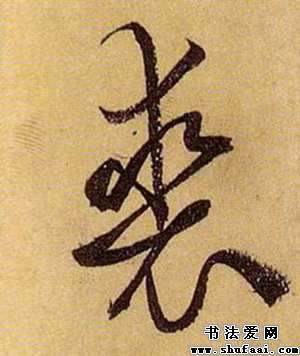 裘
书法爱网
www.shufaai.com